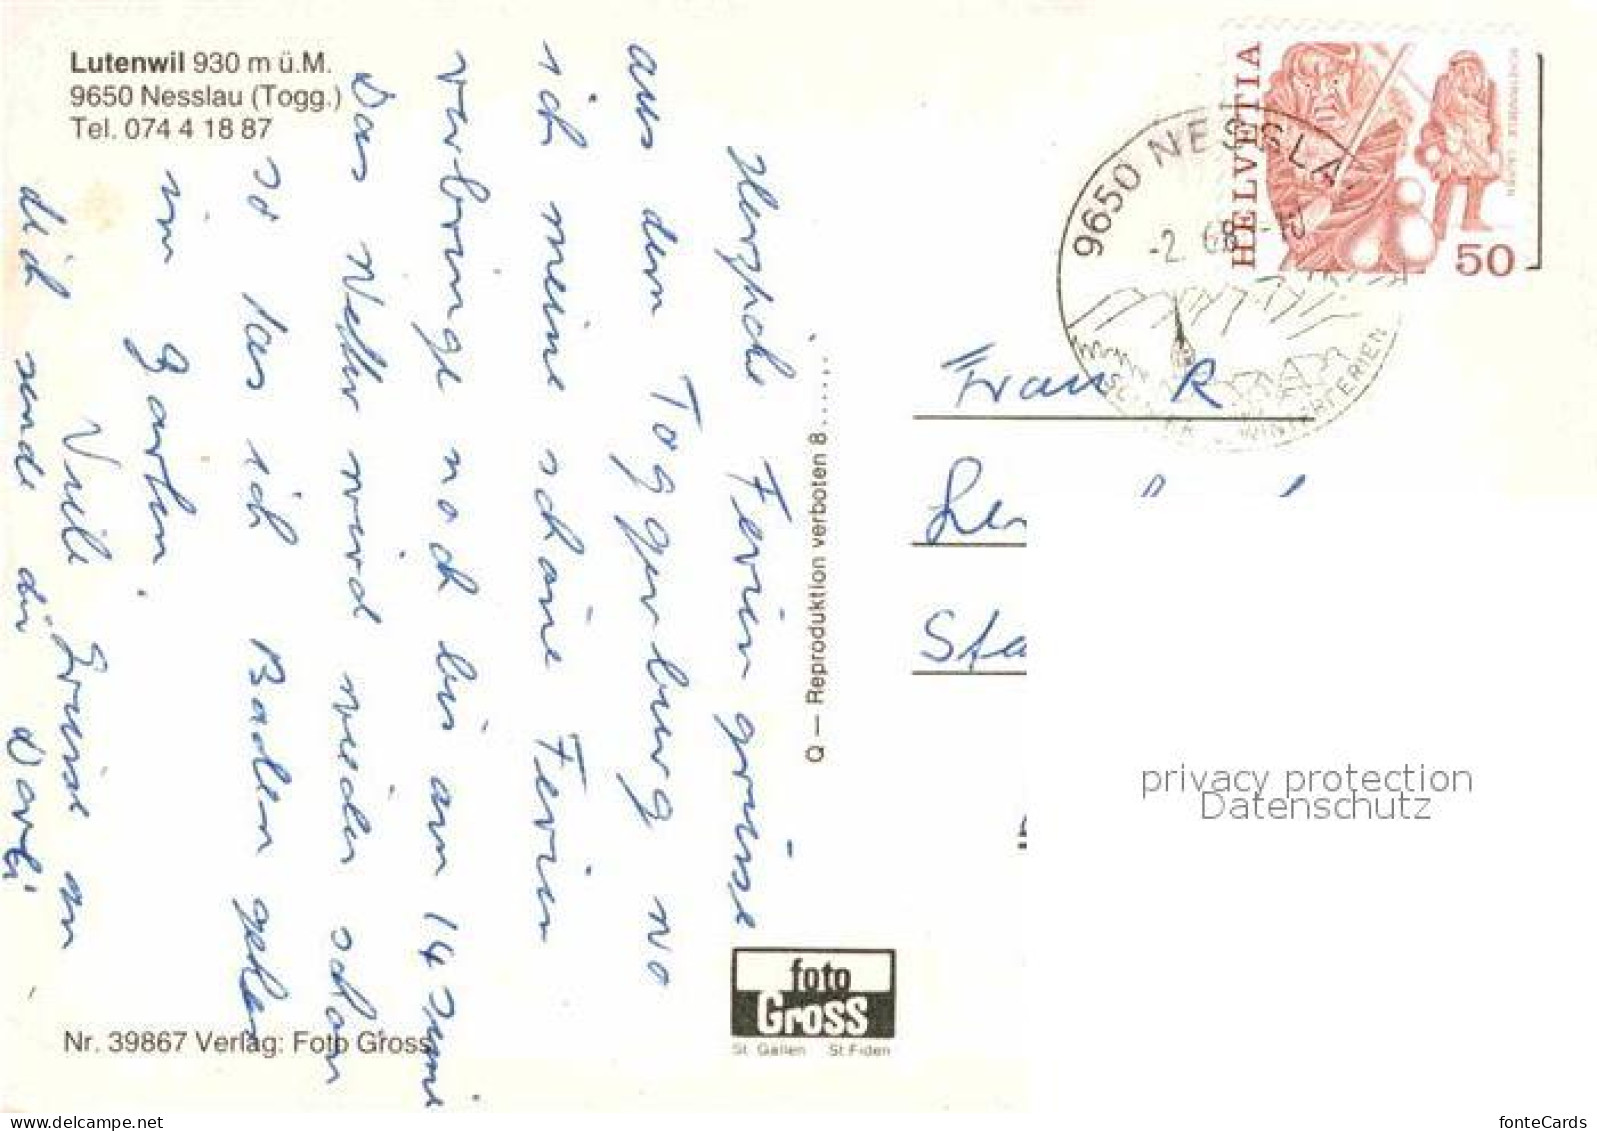 Lutenwil 930 m ü.M.
9650 Nesslau (Togg.)
Tel. 074 4 18 87
Herzliche Ferien grüsse
aus dem Toggenburg wo
ich meine schöne Ferien
verbringe noch bis am 14 Juni
Das Wetter wird wieder schön
so das ich Baden gehen
im Garten.
Viele Grüsse an
dich sende dir Dorli
Nr. 39867 Verlag: Foto Gross
Q — Reproduktion verboten 8......
foto
Gross
St. Gallen St. Fiden
HELVETIA
50
9650 NESSLA
-2. 68
WINTERFERIEN
Frau R
Sta
privacy protection
Datenschutz
fonteCards